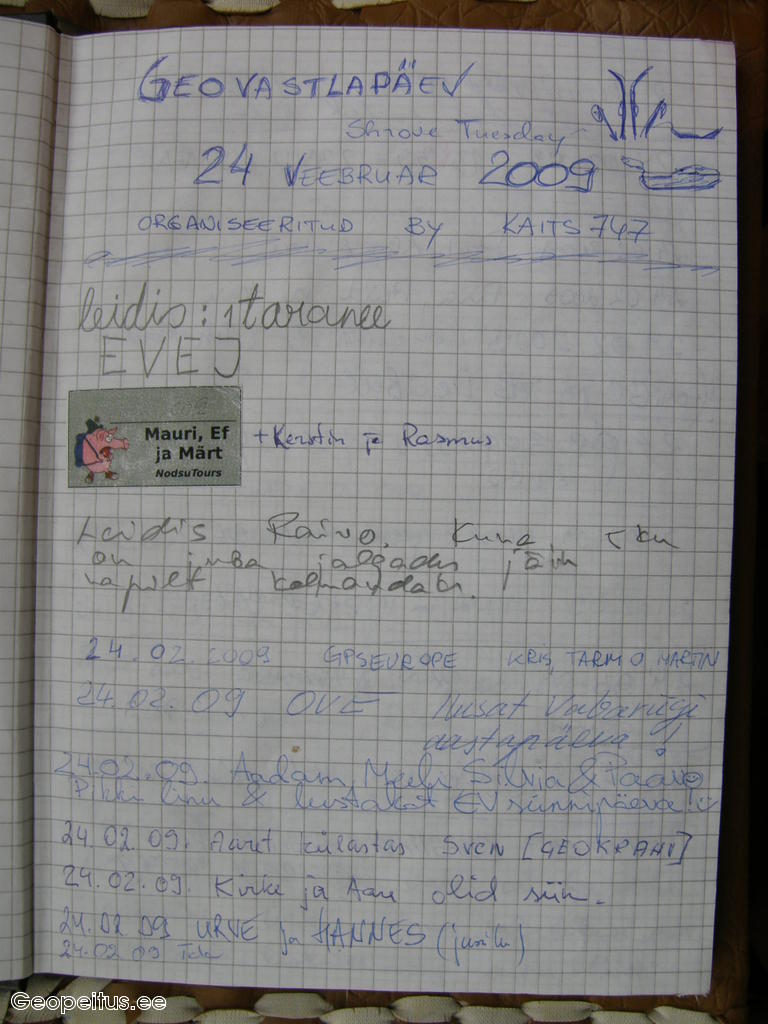 GEOVASTLAPÄEV
Shrove Tuesday
24 VEEBRUAR 2009
ORGANISEERITUD BY KAITS 747
leidis: 1taranee
EVEJ
Mauri, Ef
ja Märt
NodsuTours
+ Kerstin ja Rasmus
Leidis Raivo. Kuna
on juba jalgades jäin
napilt kolmandaks.
24.02.2009 GPSEUROPE KRIS, TARMO MARTIN
24.02.09 OVE Ilusat Vabariigi
aastapäeva!
24.02.09. Aadam, Meeli Silvia & Paavo
Pikki linu & EV sünnipäeva!
24.02.09. Aaret külastas SVEN [GEOKRAHV]
24.02.09. Kirke ja Aare olid siin.
24.02.09 URVE ja HANNES
24.02.09
Geopeitus.ee